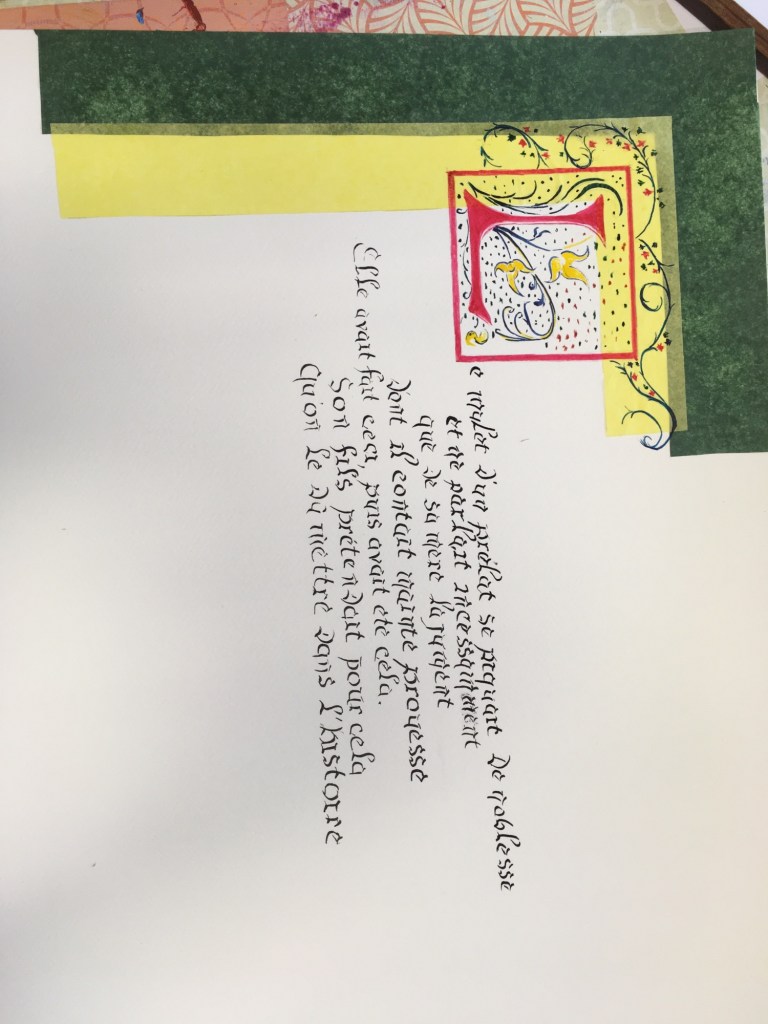 Le mulet d'un prélat se piquait de noblesse
et ne parlait incessamment
que de sa mere la jument
dont il contait mainte prouesse
Elle avait fait ceci, puis avait été cela.
Son fils prétendait pour cela
Qu'on le dû mettre dans l'histoire